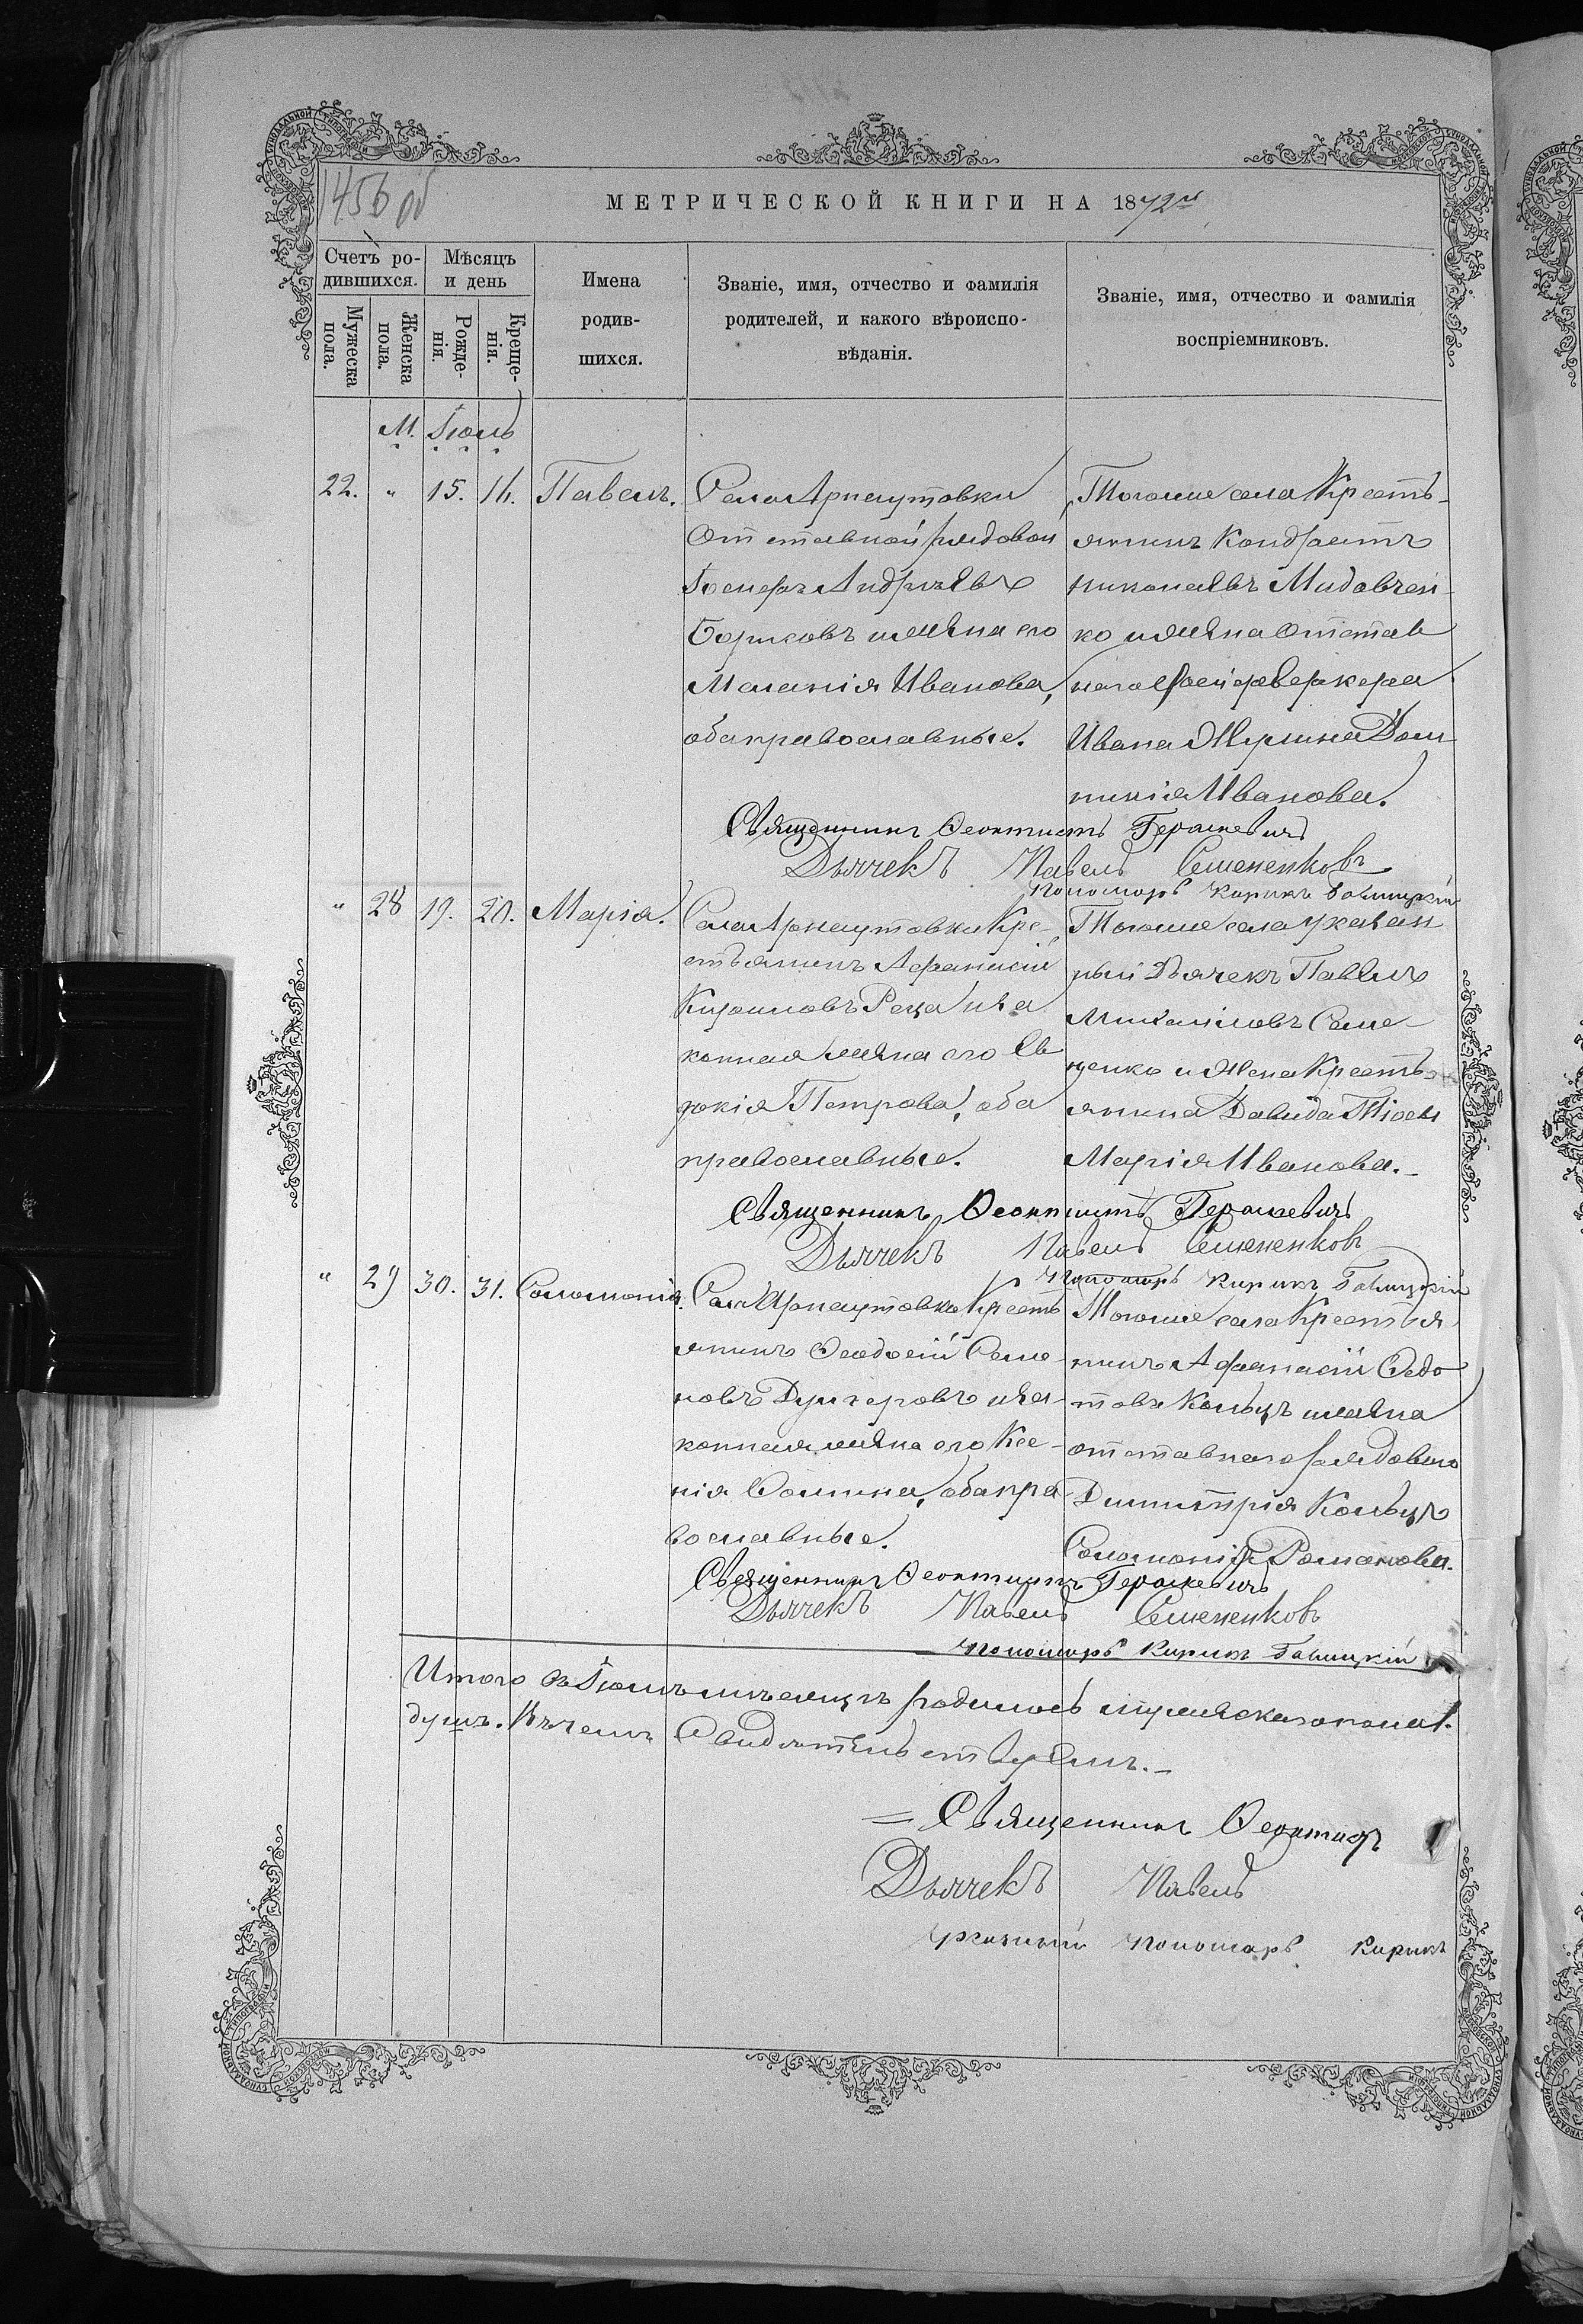 1456 об
МЕТРИЧЕСКОЙ КНИГИ НА 1872й
Счетъ ро-
дившихся.
Мужеска
пола.
Женска
пола.
Мѣсяцъ
и день
Рожде-
нія.
Креще-
нія.
Имена
родив-
шихся.
Званіе, имя, отчество и фамилія
родителей, и какого вѣроиспо-
вѣданія.
Званіе, имя, отчество и фамилія
воспріемниковъ.
М. Іюль
22. " 15. 16. Павелъ.
Села Арнаутовки
Отставной рядовой
Андрѣевъ
Борисовъ и жена его
Меланія Иванова,
оба православные.
Тогоже села Кресть-
янинъ Кондратъ
Николаевъ Мидовчен-
ко и жена отстав
наго фейерверкера
Ивана Дом-
никія Иванова.
Священникъ Ѳеоктистъ Герашевичъ
Дьячекъ Павелъ Семененковъ
Пономарь Кирикъ Бавицкій
" 28 19. 20. Марія.
Села Арнаутовки Кре-
стьянинъ Афанасій
Кириловъ Реца и за
конная жена его Ев
докія Петрова, оба
православные.
Тогоже села указан
ный Дьячекъ Павелъ
Михаиловъ Семе-
ненко и жена Кресть-
янина Давида
Марія Иванова.-
Священникъ Ѳеоктистъ Герашевичъ
Дьячекъ Павелъ Семененковъ
Пономарь Кирикъ Бавицкій
" 29 30. 31. Соломонія.
Села Арнаутовки Кресть
янинъ Ѳеодосій Семе-
новъ Дунгеровъ и за-
конная жена его Ксе-
нія Ѳомина, оба пра
вославные.
Тогоже села Крестья
нинъ Афанасій Федо
товъ Кольцъ и жена
отставнаго рядоваго
Димитрія Кольцъ
Соломонія Романова.
Священникъ Ѳеоктистъ Герашевичъ
Дьячекъ Павелъ Семененковъ
Пономарь Кирикъ Бавицкій
Итого въ Іюлѣ мѣсяцѣ родилось мужеска пола 1.
душъ. Въ чемъ Свидѣтельствуемъ.-
= Священникъ Ѳеоктистъ
Дьячекъ Павелъ
указный пономарь Кирикъ